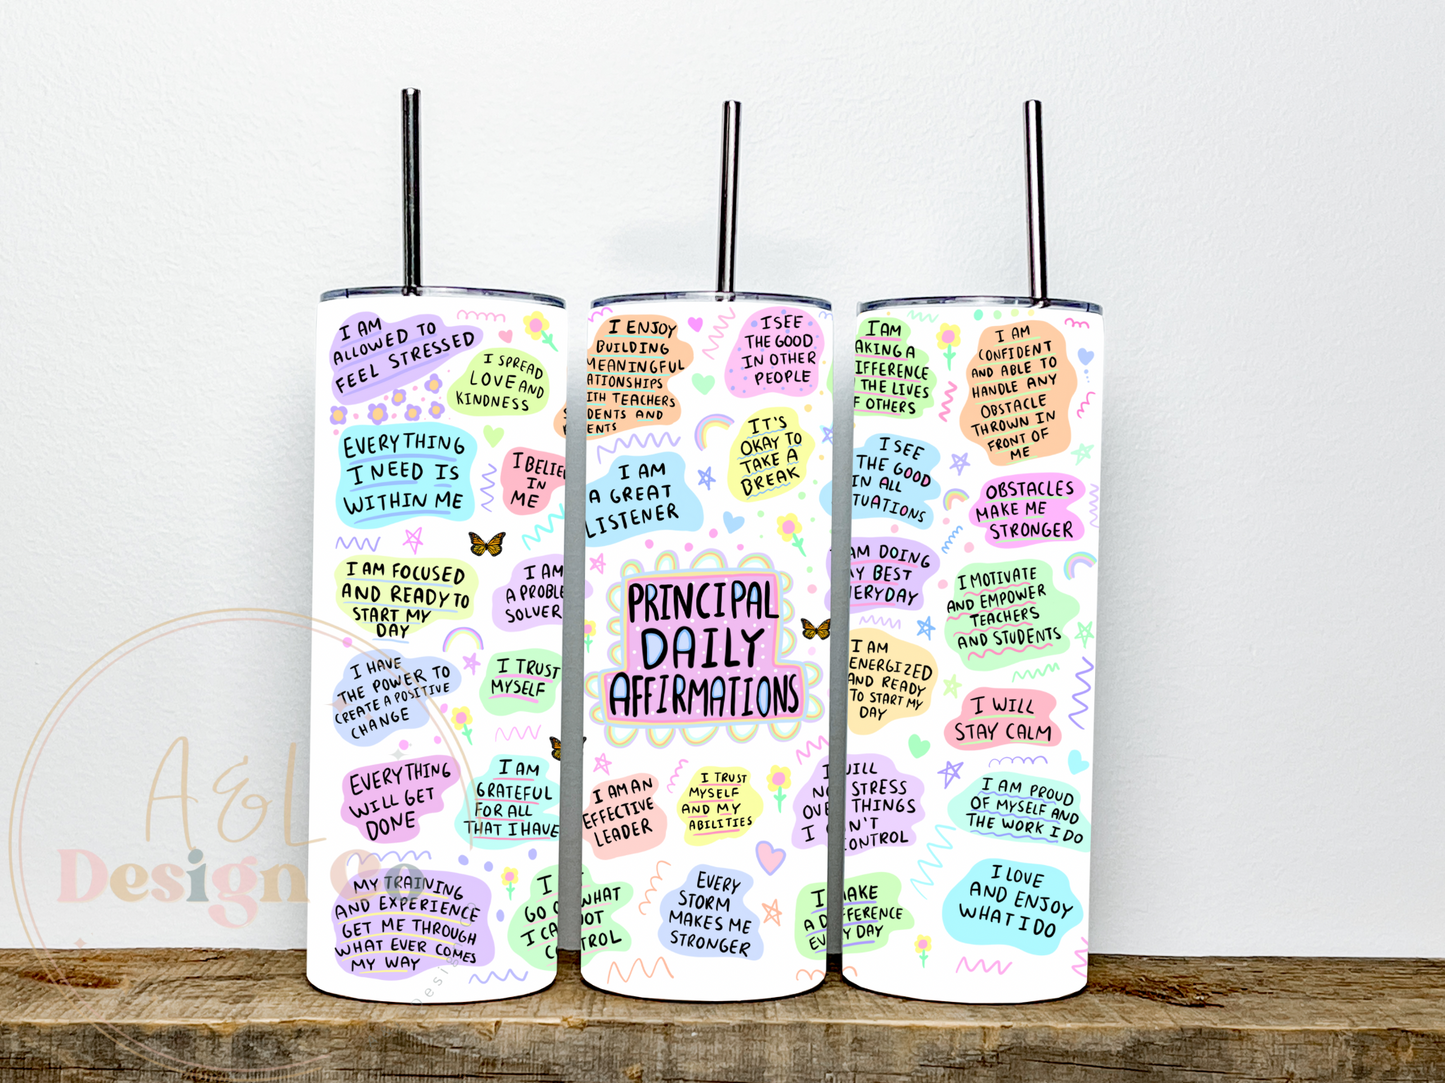 I AM
ALLOWED TO
FEEL STRESSED
I SPREAD
LOVE AND
KINDNESS
EVERYTHING
I NEED IS
WITHIN ME
I BELIE
IN
ME
I AM FOCUSED
AND READY TO
START MY
DAY
I AM
A PROBLE
SOLVER
I HAVE
THE POWER TO
CREATE A POSITIVE
CHANGE
I TRUST
MYSELF
EVERYTHING
WILL GET
DONE
I AM
GRATEFUL
FOR ALL
THAT I HAVE
MY TRAINING
AND EXPERIENCE
GET ME THROUGH
WHAT EVER COMES
MY WAY
I ENJOY
BUILDING
MEANINGFUL
ATIONSHIPS
ITH TEACHERS
DENTS AND
ENTS
I SEE
THE GOOD
IN OTHER
PEOPLE
IT'S
OKAY TO
TAKE A
BREAK
I AM
A GREAT
LISTENER
PRINCIPAL
DAILY
AFFIRMATIONS
I AM AN
EFFECTIVE
LEADER
I TRUST
MYSELF
AND MY
ABILITIES
EVERY
STORM
MAKES ME
STRONGER
I AM
AKING A
IFFERENCE
THE LIVES
F OTHERS
I AM
CONFIDENT
AND ABLE TO
HANDLE ANY
OBSTACLE
THROWN IN
FRONT OF
ME
I SEE
THE GOOD
IN ALL
TUATIONS
OBSTACLES
MAKE ME
STRONGER
AM DOING
Y BEST
ERYDAY
I MOTIVATE
AND EMPOWER
TEACHERS
AND STUDENTS
I AM
ENERGIZED
AND READY
TO START MY
DAY
I WILL
STAY CALM
WILL
STRESS
OVE THINGS
I N'T
CONTROL
I AM PROUD
OF MYSELF AND
THE WORK I DO
I MAKE
A DIFFERENCE
EVERY DAY
I LOVE
AND ENJOY
WHAT I DO
A & L
Design Co